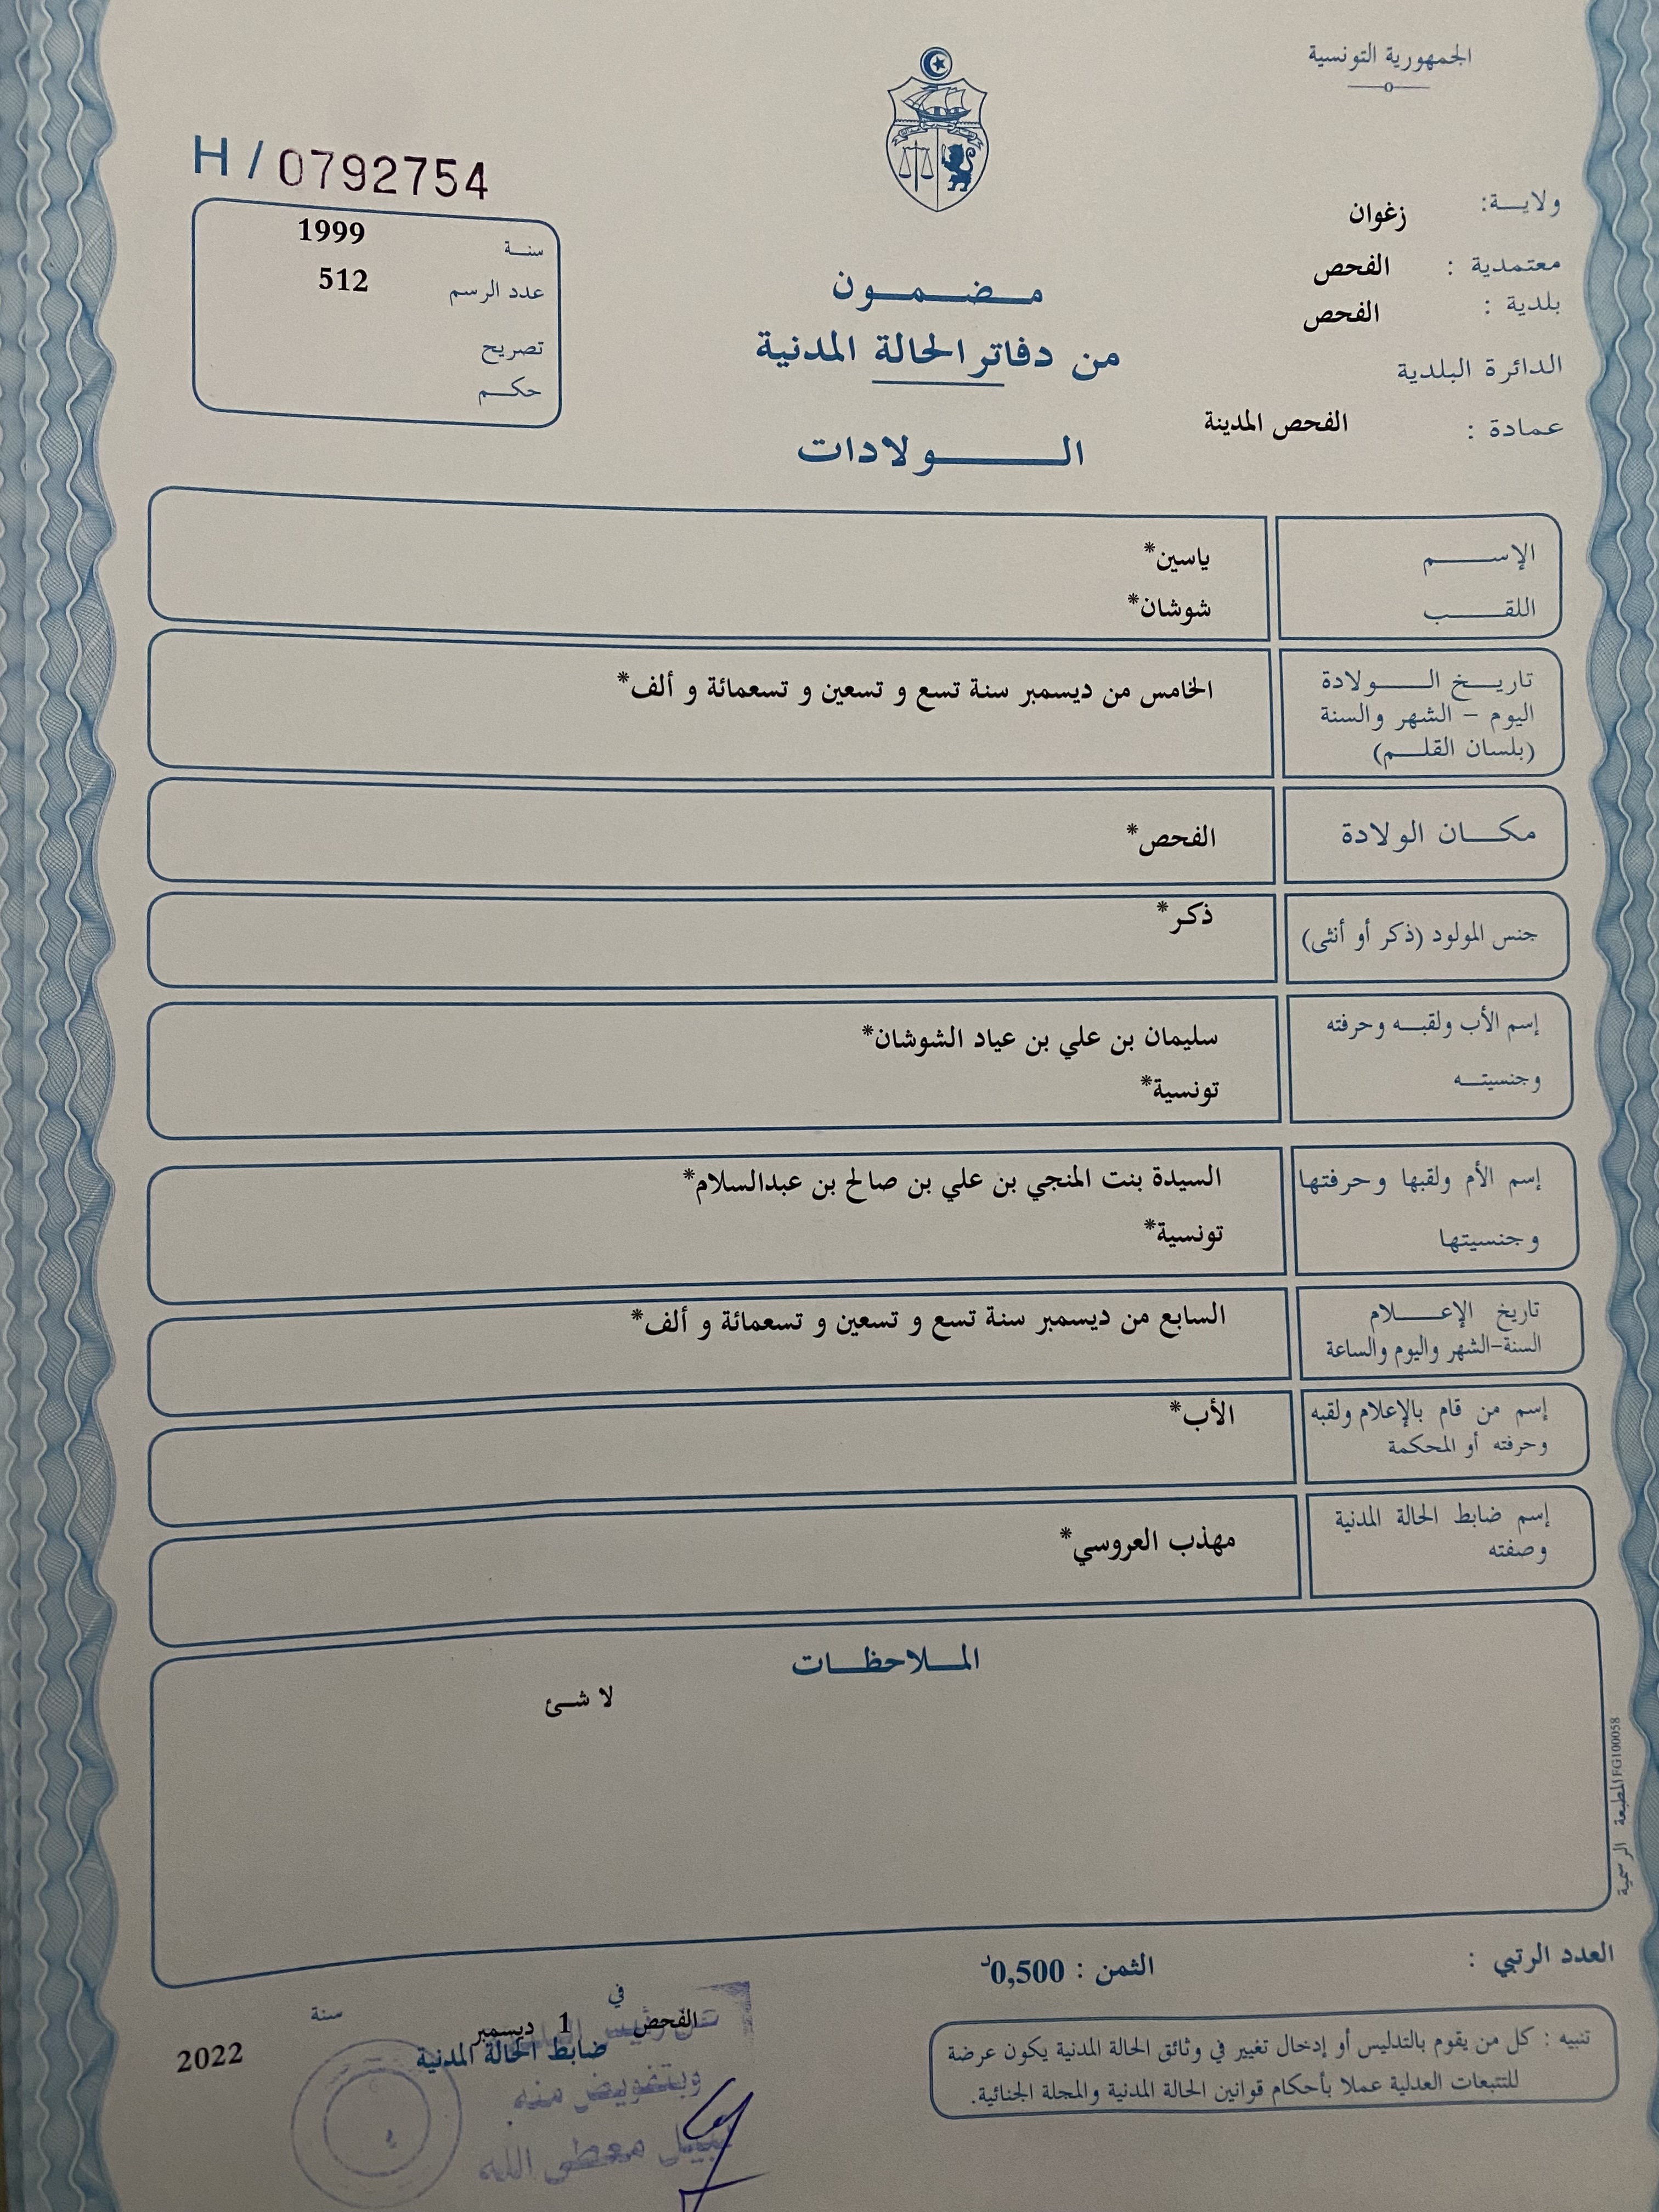 الجمهورية التونسية
H / 0792754
ولايـــة: زغوان
معتمدية : الفحص
بلدية : الفحص
الدائرة البلدية
عمادة : الفحص المدينة
سنـــة 1999
عدد الرسم 512
تصريح
حكـــم
مـــضـــمـــون
من دفاتر الحالة المدنية
الـــــولادات
الإســــــم ياسين*
اللقــــــب شوشان*
تاريـــخ الـــــولادة
اليوم – الشهر والسنة
(بلسان القلـــم)
الخامس من ديسمبر سنة تسع و تسعين و تسعمائة و ألف*
مكـــان الولادة الفحص*
جنس المولود (ذكر أو أنثى) ذكر*
إسم الأب ولقبـــه وحرفته سليمان بن علي بن عياد الشوشان*
وجنسيتـــه تونسية*
إسم الأم ولقبها وحرفتها السيدة بنت المنجي بن علي بن صالح بن عبدالسلام*
وجنسيتها تونسية*
تاريخ الإعـــــلام السابع من ديسمبر سنة تسع و تسعين و تسعمائة و ألف*
السنة-الشهر واليوم والساعة
إسم من قام بالإعلام ولقبه الأب*
وحرفته أو المحكمة
إسم ضابط الحالة المدنية مهذب العروسي*
وصفته
المـــلاحظـــات
لا شئ
المطبعة الرسمية FG100058
العدد الرتبي :
الثمن : 0,500د
تنبيه : كل من يقوم بالتدليس أو إدخال تغيير في وثائق الحالة المدنية يكون عرضة
للتتبعات العدلية عملا بأحكام قوانين الحالة المدنية والمجلة الجنائية.
الفحص في 1 ديسمبر سنة 2022
ضابط الحالة المدنية
عن رئيس
وبتفويض منه
نبيل معطى الله